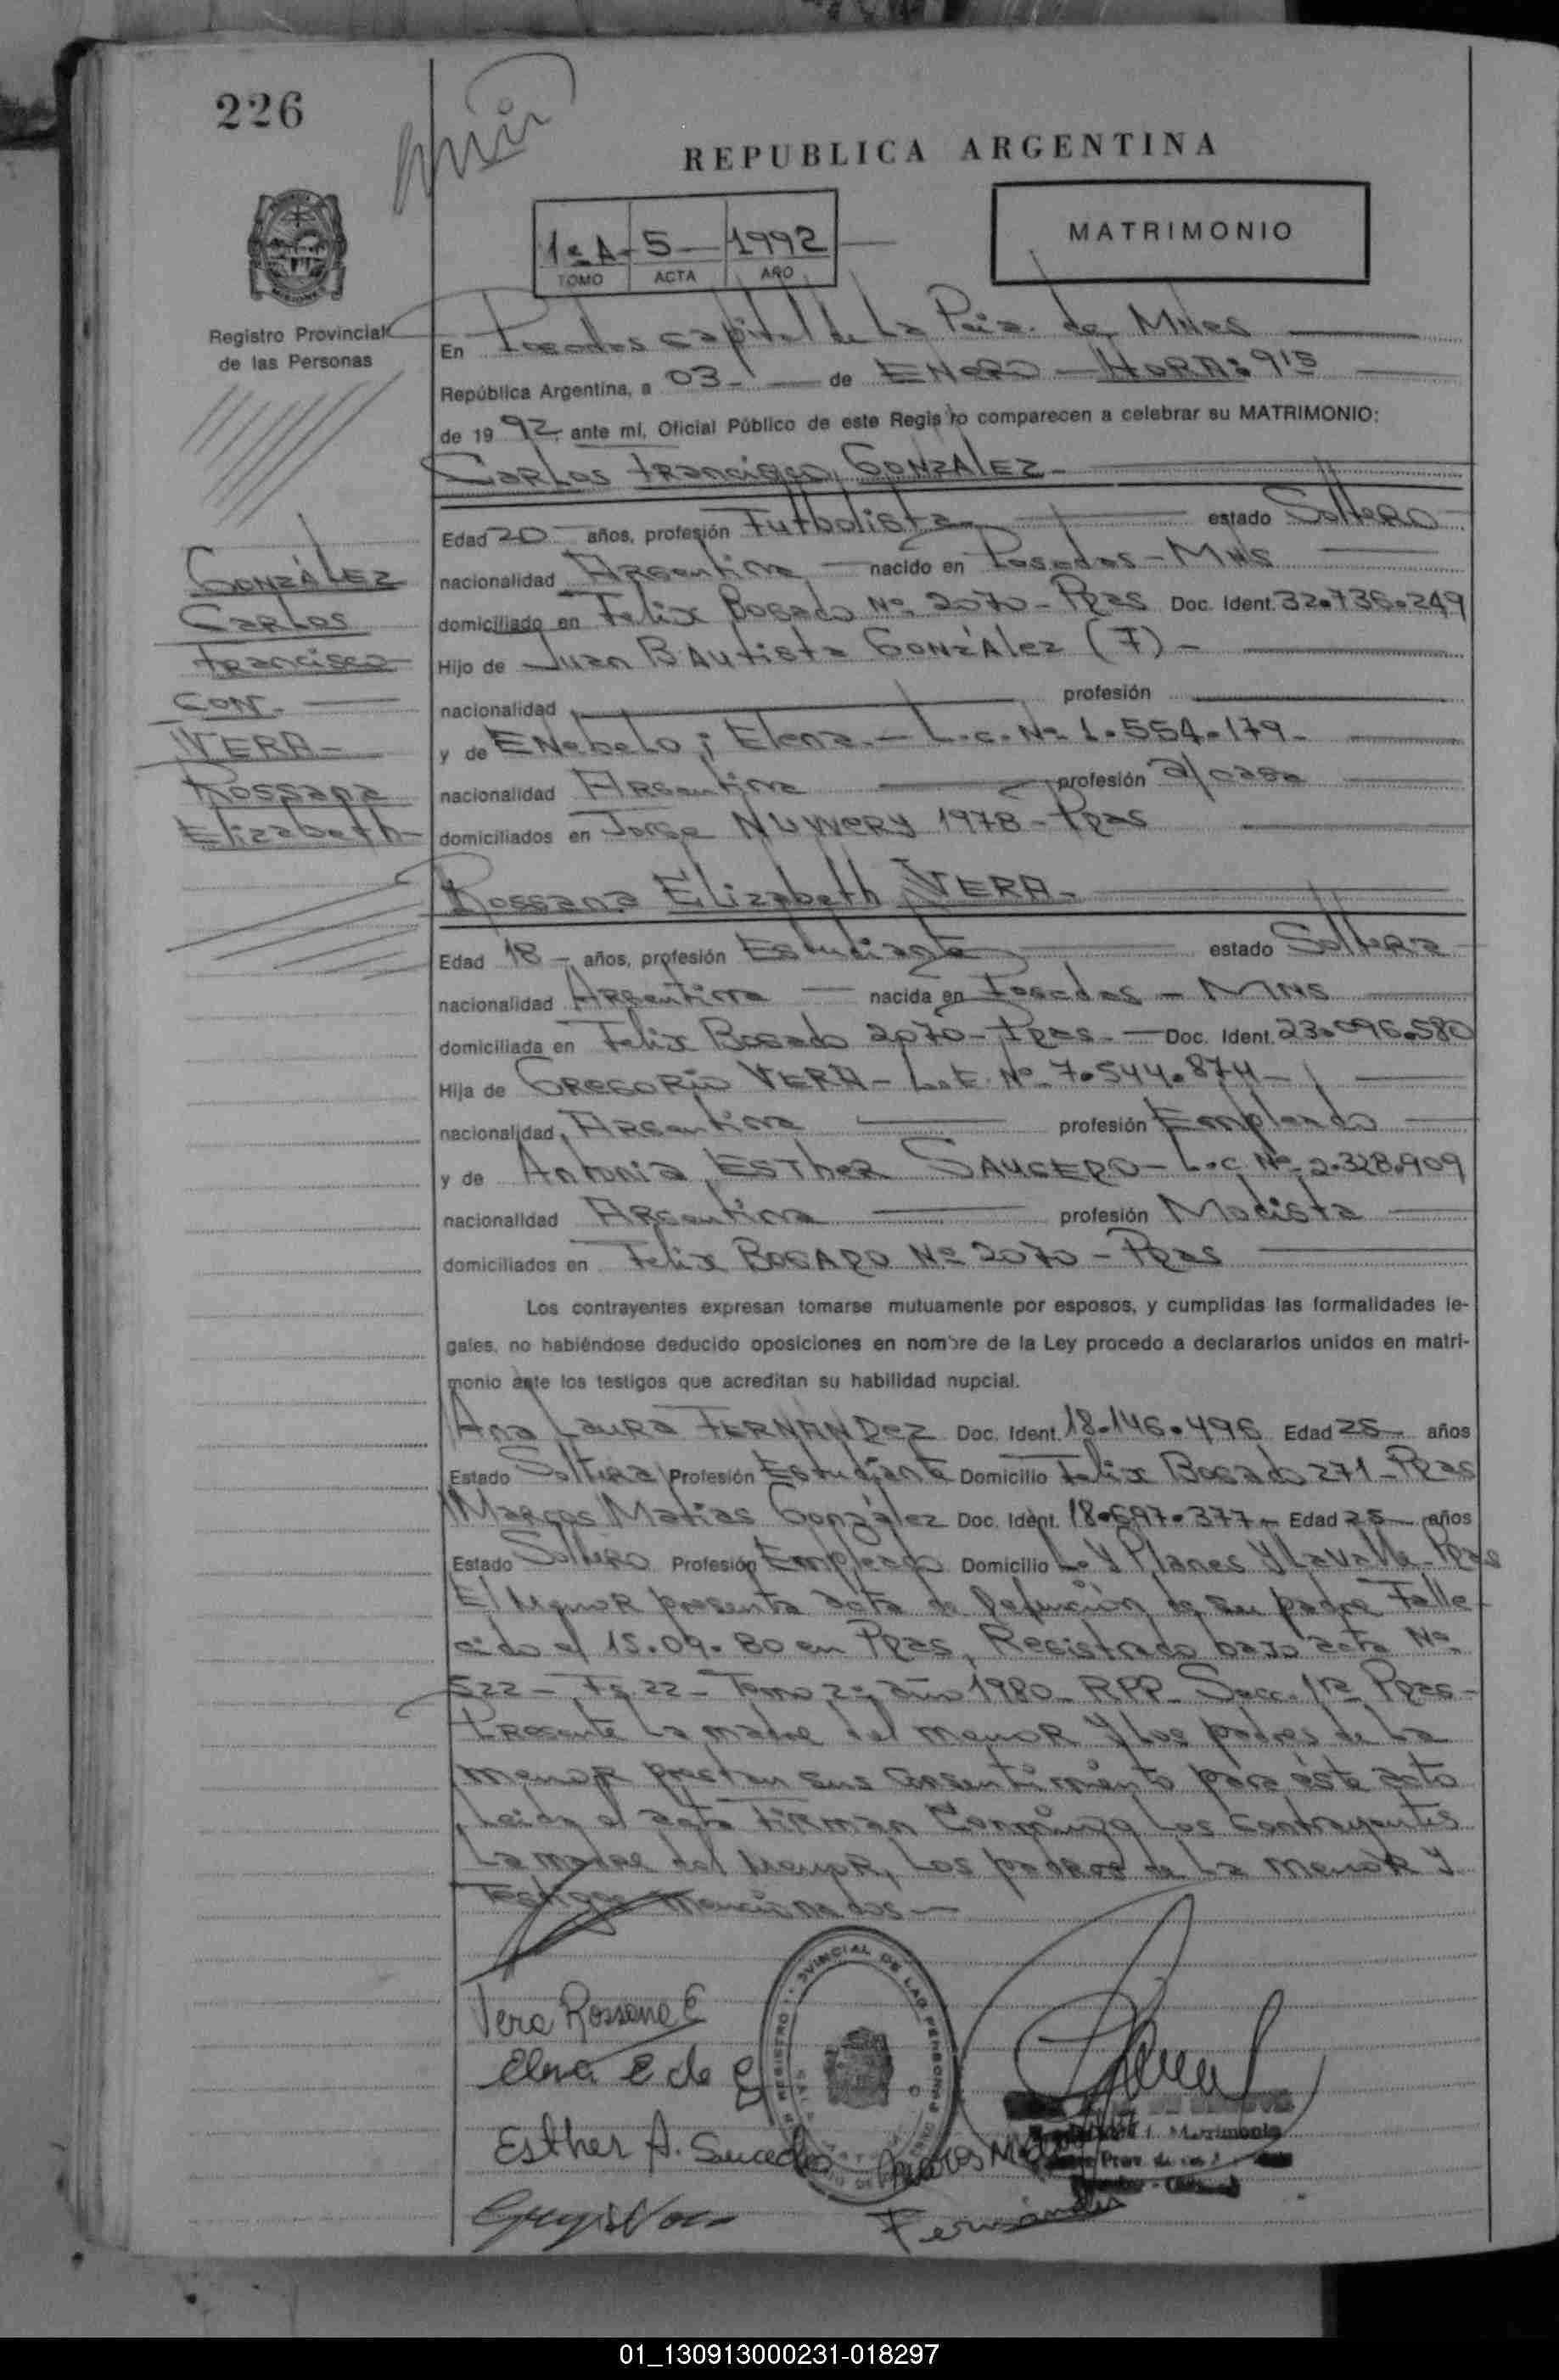 226
REPUBLICA ARGENTINA
1ª A- 5 1992
TOMO ACTA AÑO
MATRIMONIO
Registro Provincial
de las Personas
En Posadas capital de La Pcia. de MNes
República Argentina, a 03- de ENERO - HORA: 915
de 1992 ante mí, Oficial Público de este Registro comparecen a celebrar su MATRIMONIO:
CARLOS FRANCISCO GONZALEZ-
Edad 20 años, profesión Futbolista estado Soltero
nacionalidad Argentina nacido en Posadas - MNS
domiciliado en Felix Bogado Nº 2070 - Pdas Doc. Ident.
Hijo de Juan BAutista GONZÁlez (F) -
nacionalidad profesión
y de ENebelo; Elena - L.c. Nº 1.554.179-
nacionalidad Argentina profesión a/casa
domiciliados en Jorge NUWERY 1978 - Pdas
GONZÁLEZ
CARLOS
Francisco
CON.
VERA-
Rossana
Elizabeth
Rossana Elizabeth VERA-
Edad 18- años, profesión Estudiante estado Soltera
nacionalidad Argentina nacida en Posadas - MNS
domiciliada en Felix Bogado 2070 - Pdas - Doc. Ident. 23.096.580
Hija de GREGORIO VERA - L.E. Nº 7.544.874-
nacionalidad Argentina profesión Empleado
y de Antonia ESTHER SAUCEDO - L.c. Nº 2.328.909
nacionalidad Argentina profesión Modista
domiciliados en Felix BOGADO Nº 2070 - Pdas
Los contrayentes expresan tomarse mutuamente por esposos, y cumplidas las formalidades le-
gales, no habiéndose deducido oposiciones en nombre de la Ley procedo a declararlos unidos en matri-
monio ante los testigos que acreditan su habilidad nupcial.
Ana Laura FERNANDez Doc. Ident. 18.146.496 Edad 25 años
Estado Soltera Profesión Estudiante Domicilio Felix Bogado 271 - Pdas
Marcos Matias González Doc. Ident. 18.697.377- Edad 25 años
Estado Soltero Profesión Empleado Domicilio L. Y Planes Y Lavalle - Pdas
El Menor presenta acta de defunción de su padre Falle-
cido el 15.09.80 en Pdas, Registrado bajo acta Nº
522 - Fº 22 - Tomo 2º, año 1980 - RPP - Secc. 1ra Pdas-
Presente La madre del menor Y Los padres de La
menor prestan sus consentimiento para éste acto
Leida el acta Firman Conmigo Los Contrayentes
La madre del Menor, Los padres de La menor Y
Testigos mencionados-
Vera Rossana E
Elena E de G
Esther A. Saucedo
Marcos
Fernández
REGISTRO PROVINCIAL DE LAS PERSONAS
Matrimonio
01_130913000231-018297